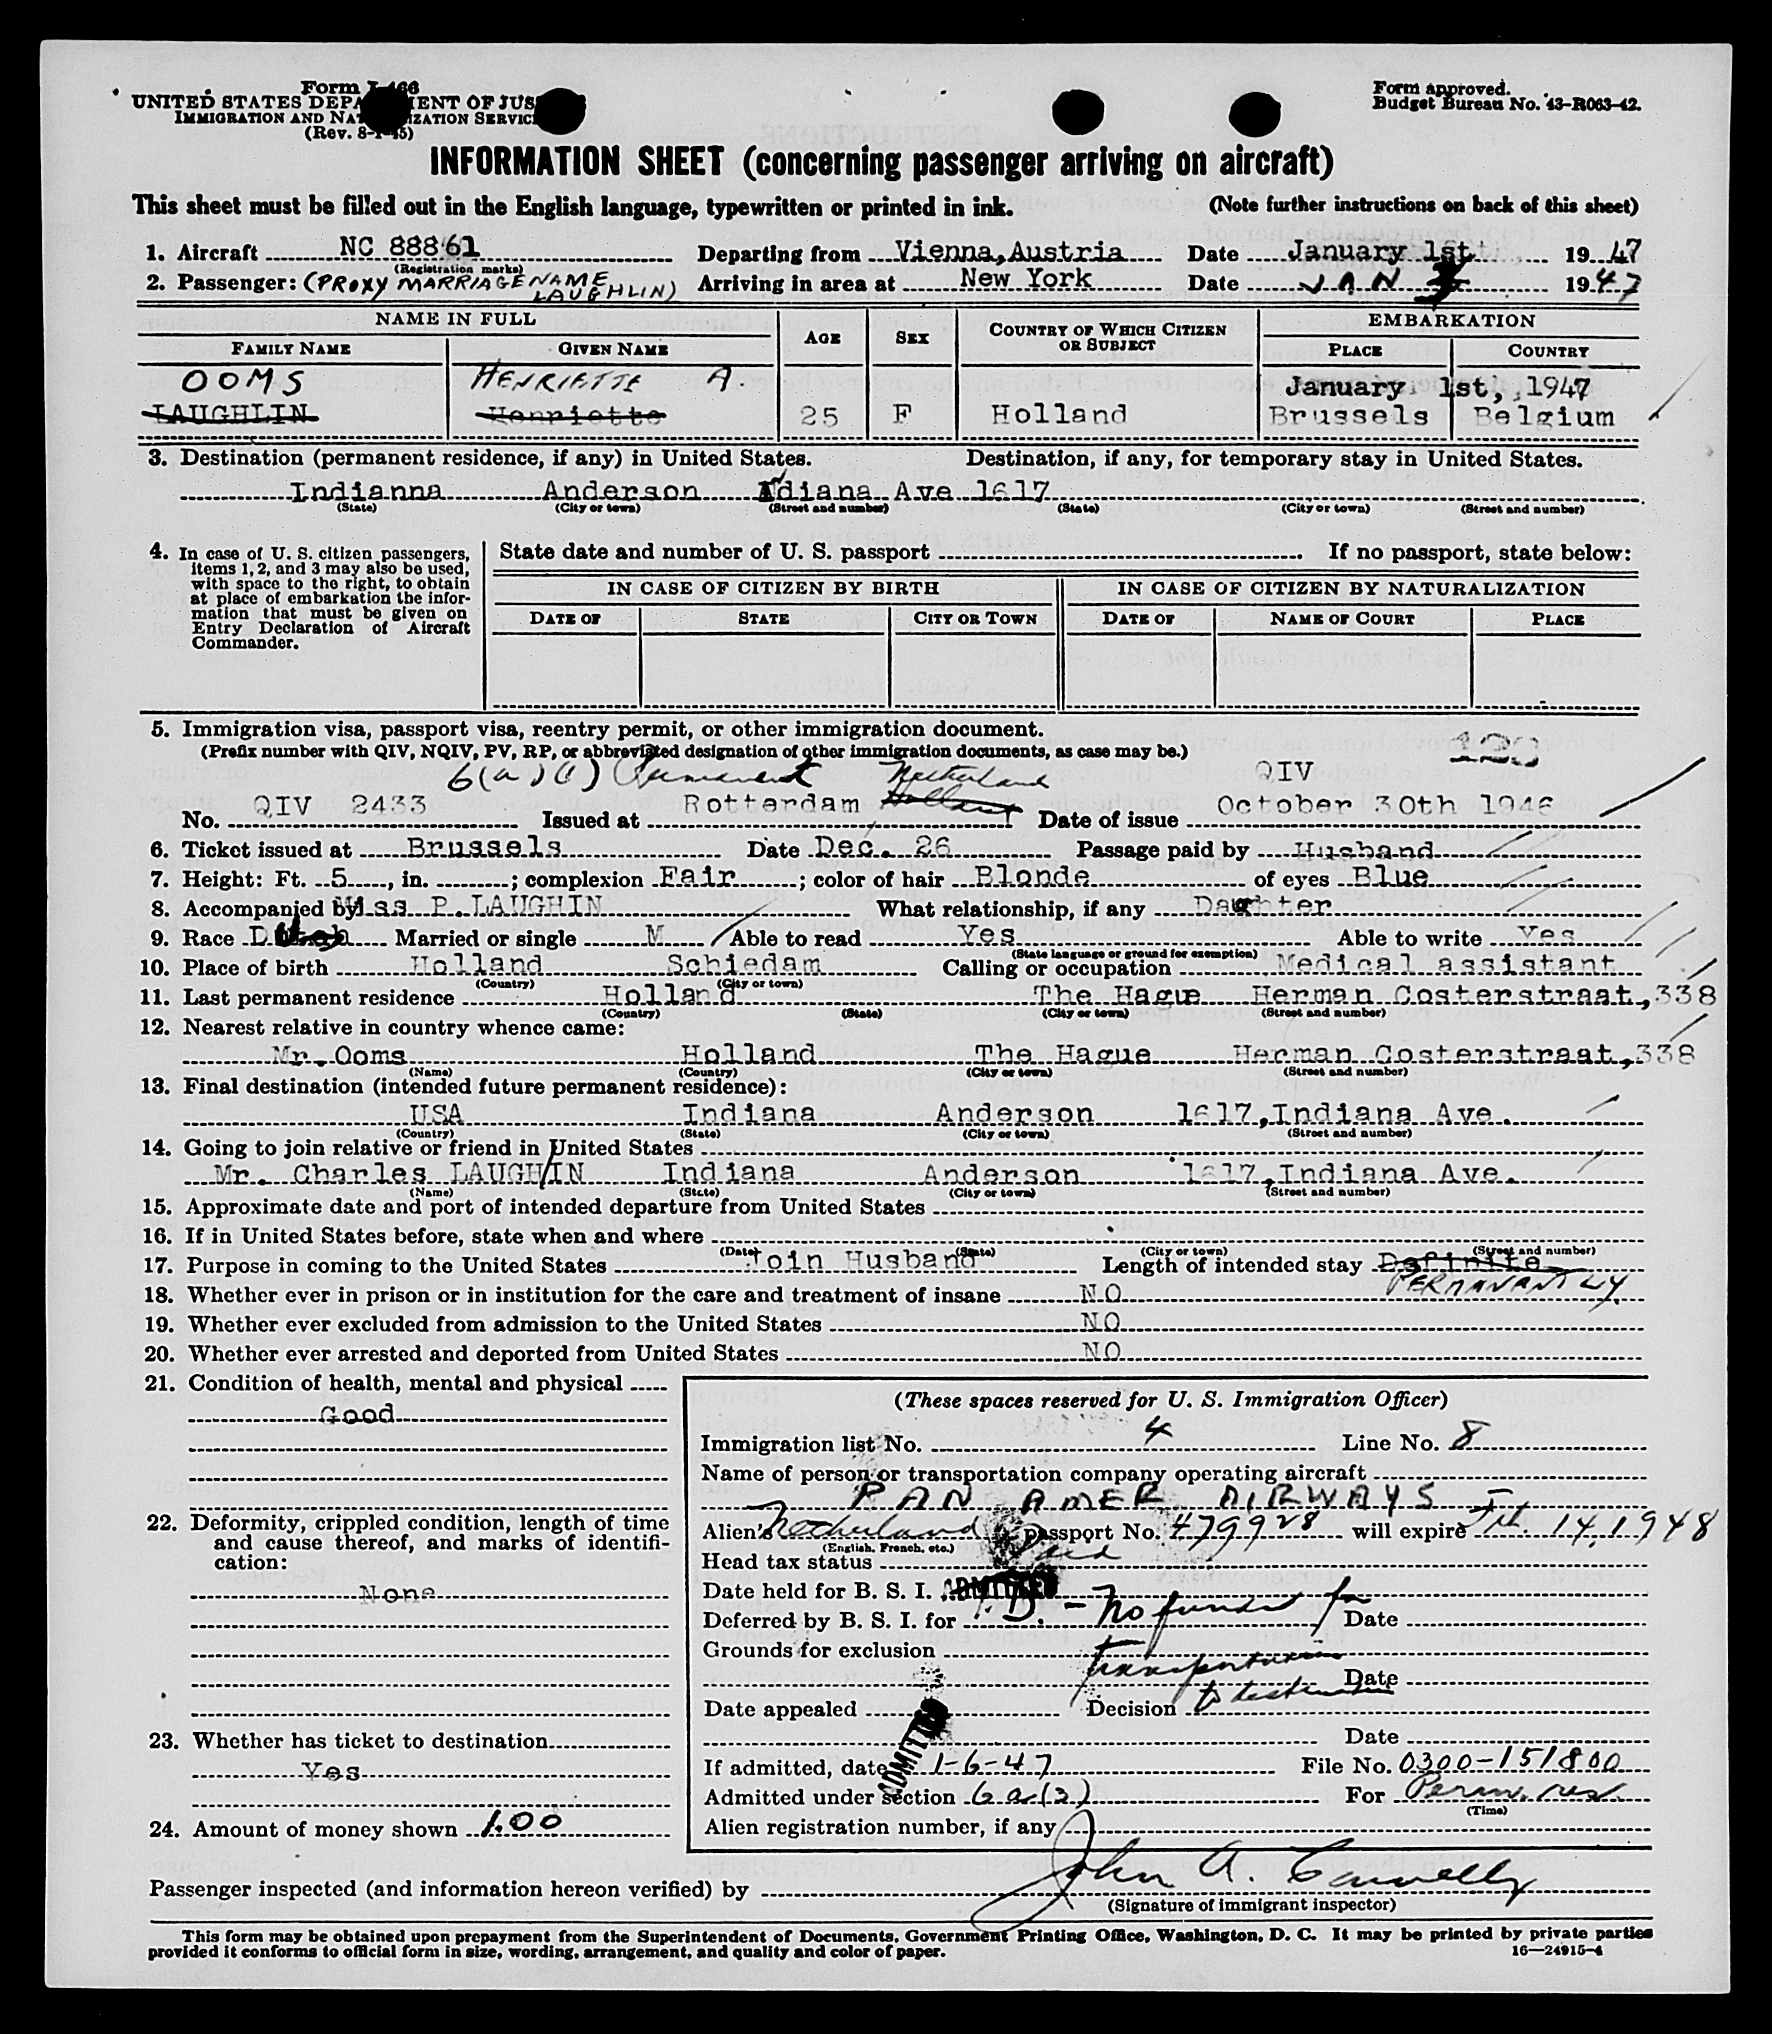 Form I-466
UNITED STATES DEPARTMENT OF JUS
IMMIGRATION AND NATURALIZATION SERVICE
(Rev. 8-1-45)
Form approved.
Budget Bureau No. 43-R063-42.
INFORMATION SHEET (concerning passenger arriving on aircraft)
This sheet must be filled out in the English language, typewritten or printed in ink. (Note further instructions on back of this sheet)
1. Aircraft NC 88861 Departing from Vienna,Austria Date January 1st 1947
(Registration marks)
2. Passenger: (PROXY MARRIAGE NAME LAUGHLIN) Arriving in area at New York Date JAN 1947
NAME IN FULL AGE SEX COUNTRY OF WHICH CITIZEN OR SUBJECT EMBARKATION
FAMILY NAME GIVEN NAME PLACE COUNTRY
OOMS HENRIETTE A. January 1st, 1947
LAUGHLIN Henriette 25 F Holland Brussels Belgium
3. Destination (permanent residence, if any) in United States. Destination, if any, for temporary stay in United States.
Indianna Anderson Indiana Ave 1617
(State) (City or town) (Street and number) (State) (City or town) (Street and number)
4. In case of U. S. citizen passengers, items 1, 2, and 3 may also be used, with space to the right, to obtain at place of embarkation the information that must be given on Entry Declaration of Aircraft Commander.
State date and number of U. S. passport If no passport, state below:
IN CASE OF CITIZEN BY BIRTH IN CASE OF CITIZEN BY NATURALIZATION
DATE OF STATE CITY OR TOWN DATE OF NAME OF COURT PLACE
5. Immigration visa, passport visa, reentry permit, or other immigration document.
(Prefix number with QIV, NQIV, PV, RP, or abbreviated designation of other immigration documents, as case may be.) 120
6(a)( ) Permanent Netherland QIV
No. QIV 2433 Issued at Rotterdam Holland Date of issue October 30th 1946
6. Ticket issued at Brussels Date Dec. 26 Passage paid by Husband
7. Height: Ft. 5, in. ; complexion Fair; color of hair Blonde of eyes Blue
8. Accompanied by Miss P. LAUGHIN What relationship, if any Daughter
9. Race Dutch Married or single M Able to read Yes Able to write Yes
(State language or ground for exemption)
10. Place of birth Holland Schiedam Calling or occupation Medical assistant
(Country) (City or town)
11. Last permanent residence Holland The Hague Herman Costerstraat,338
(Country) (State) (City or town) (Street and number)
12. Nearest relative in country whence came:
Mr. Ooms Holland The Hague Herman Costerstraat,338
(Name) (Country) (City or town) (Street and number)
13. Final destination (intended future permanent residence):
USA Indiana Anderson 1617,Indiana Ave.
(Country) (State) (City or town) (Street and number)
14. Going to join relative or friend in United States
Mr. Charles LAUGHIN Indiana Anderson 1617,Indiana Ave.
(Name) (State) (City or town) (Street and number)
15. Approximate date and port of intended departure from United States
16. If in United States before, state when and where
(Date) (State) (City or town) (Street and number)
17. Purpose in coming to the United States Join Husband Length of intended stay Definite
PERMANANTLY.
18. Whether ever in prison or in institution for the care and treatment of insane NO
19. Whether ever excluded from admission to the United States NO
20. Whether ever arrested and deported from United States NO
21. Condition of health, mental and physical
Good
22. Deformity, crippled condition, length of time and cause thereof, and marks of identification:
None
23. Whether has ticket to destination
Yes
24. Amount of money shown 1.00
(These spaces reserved for U. S. Immigration Officer)
Immigration list No. 4 Line No. 8
Name of person or transportation company operating aircraft
PAN AMER AIRWAYS
Alien's Netherland passport No. 479928 will expire Feb. 14, 1948
(English, French, etc.)
Head tax status Paid
Date held for B. S. I. ADMITTED
Deferred by B. S. I. for T.D. - No funds for Date
Grounds for exclusion transportation
Date
Date appealed Decision to destination
Date
ADMITTED
If admitted, date 1-6-47 File No. 0300-151800
Admitted under section 6a(2) For Perm. res.
(Time)
Alien registration number, if any
Passenger inspected (and information hereon verified) by John A. Connelly
(Signature of immigrant inspector)
This form may be obtained upon prepayment from the Superintendent of Documents, Government Printing Office, Washington, D. C. It may be printed by private parties
provided it conforms to official form in size, wording, arrangement, and quality and color of paper. 16—24915-4